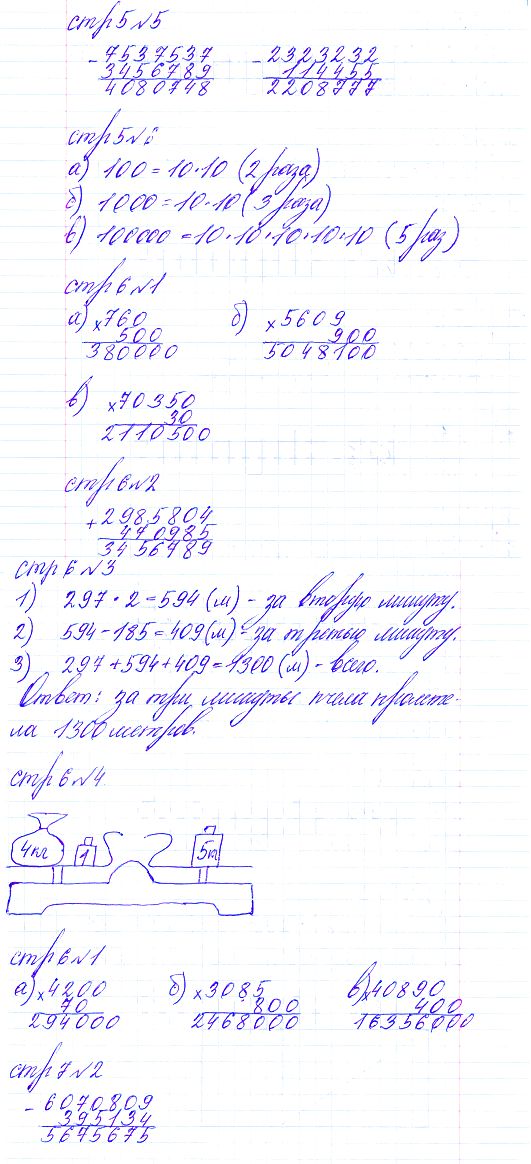 стр 5 №5
- 7537537   - 2323232
3456789   114455
4080748   2208777
стр 5 №
а) 100 = 10·10 (2 раза)
б) 1000 = 10·10 (3 раза)
в) 100000 = 10·10·10·10·10 (5 раз)
стр 6 №1
а) × 760   б) × 5609
500   900
380000   5048100
в) × 70350
30
2110500
стр 6 №2
+ 2985804
470985
3456789
стр 6 №3
1) 297 · 2 = 594 (м) - за вторую минуту.
2) 594 - 185 = 409 (м) - за третью минуту.
3) 297 + 594 + 409 = 1300 (м) - всего.
Ответ: за три минуты пчела пролете-
ла 1300 метров.
стр 6 №4
4кг 1 5кг
стр 6 №1
а) × 4200   б) × 3085   в) × 40890
70   800   400
294000   2468000   16356000
стр 7 №2
- 6070809
395134
5675675